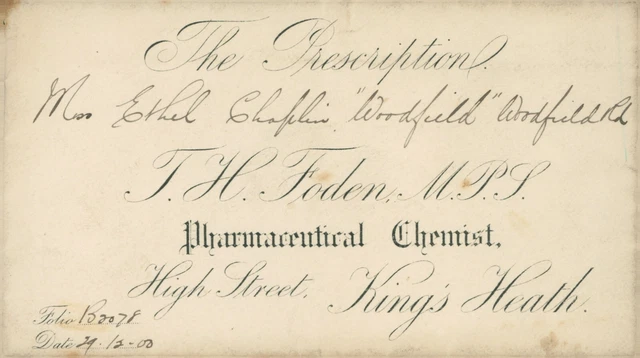 The Prescription.
Miss Ethel Chaplin "Woodfield" Woodfield Rd
T. H. Foden, M.P.S.
Pharmaceutical Chemist,
High Street. King's Heath.
Folio B2078
Date 29-12-00